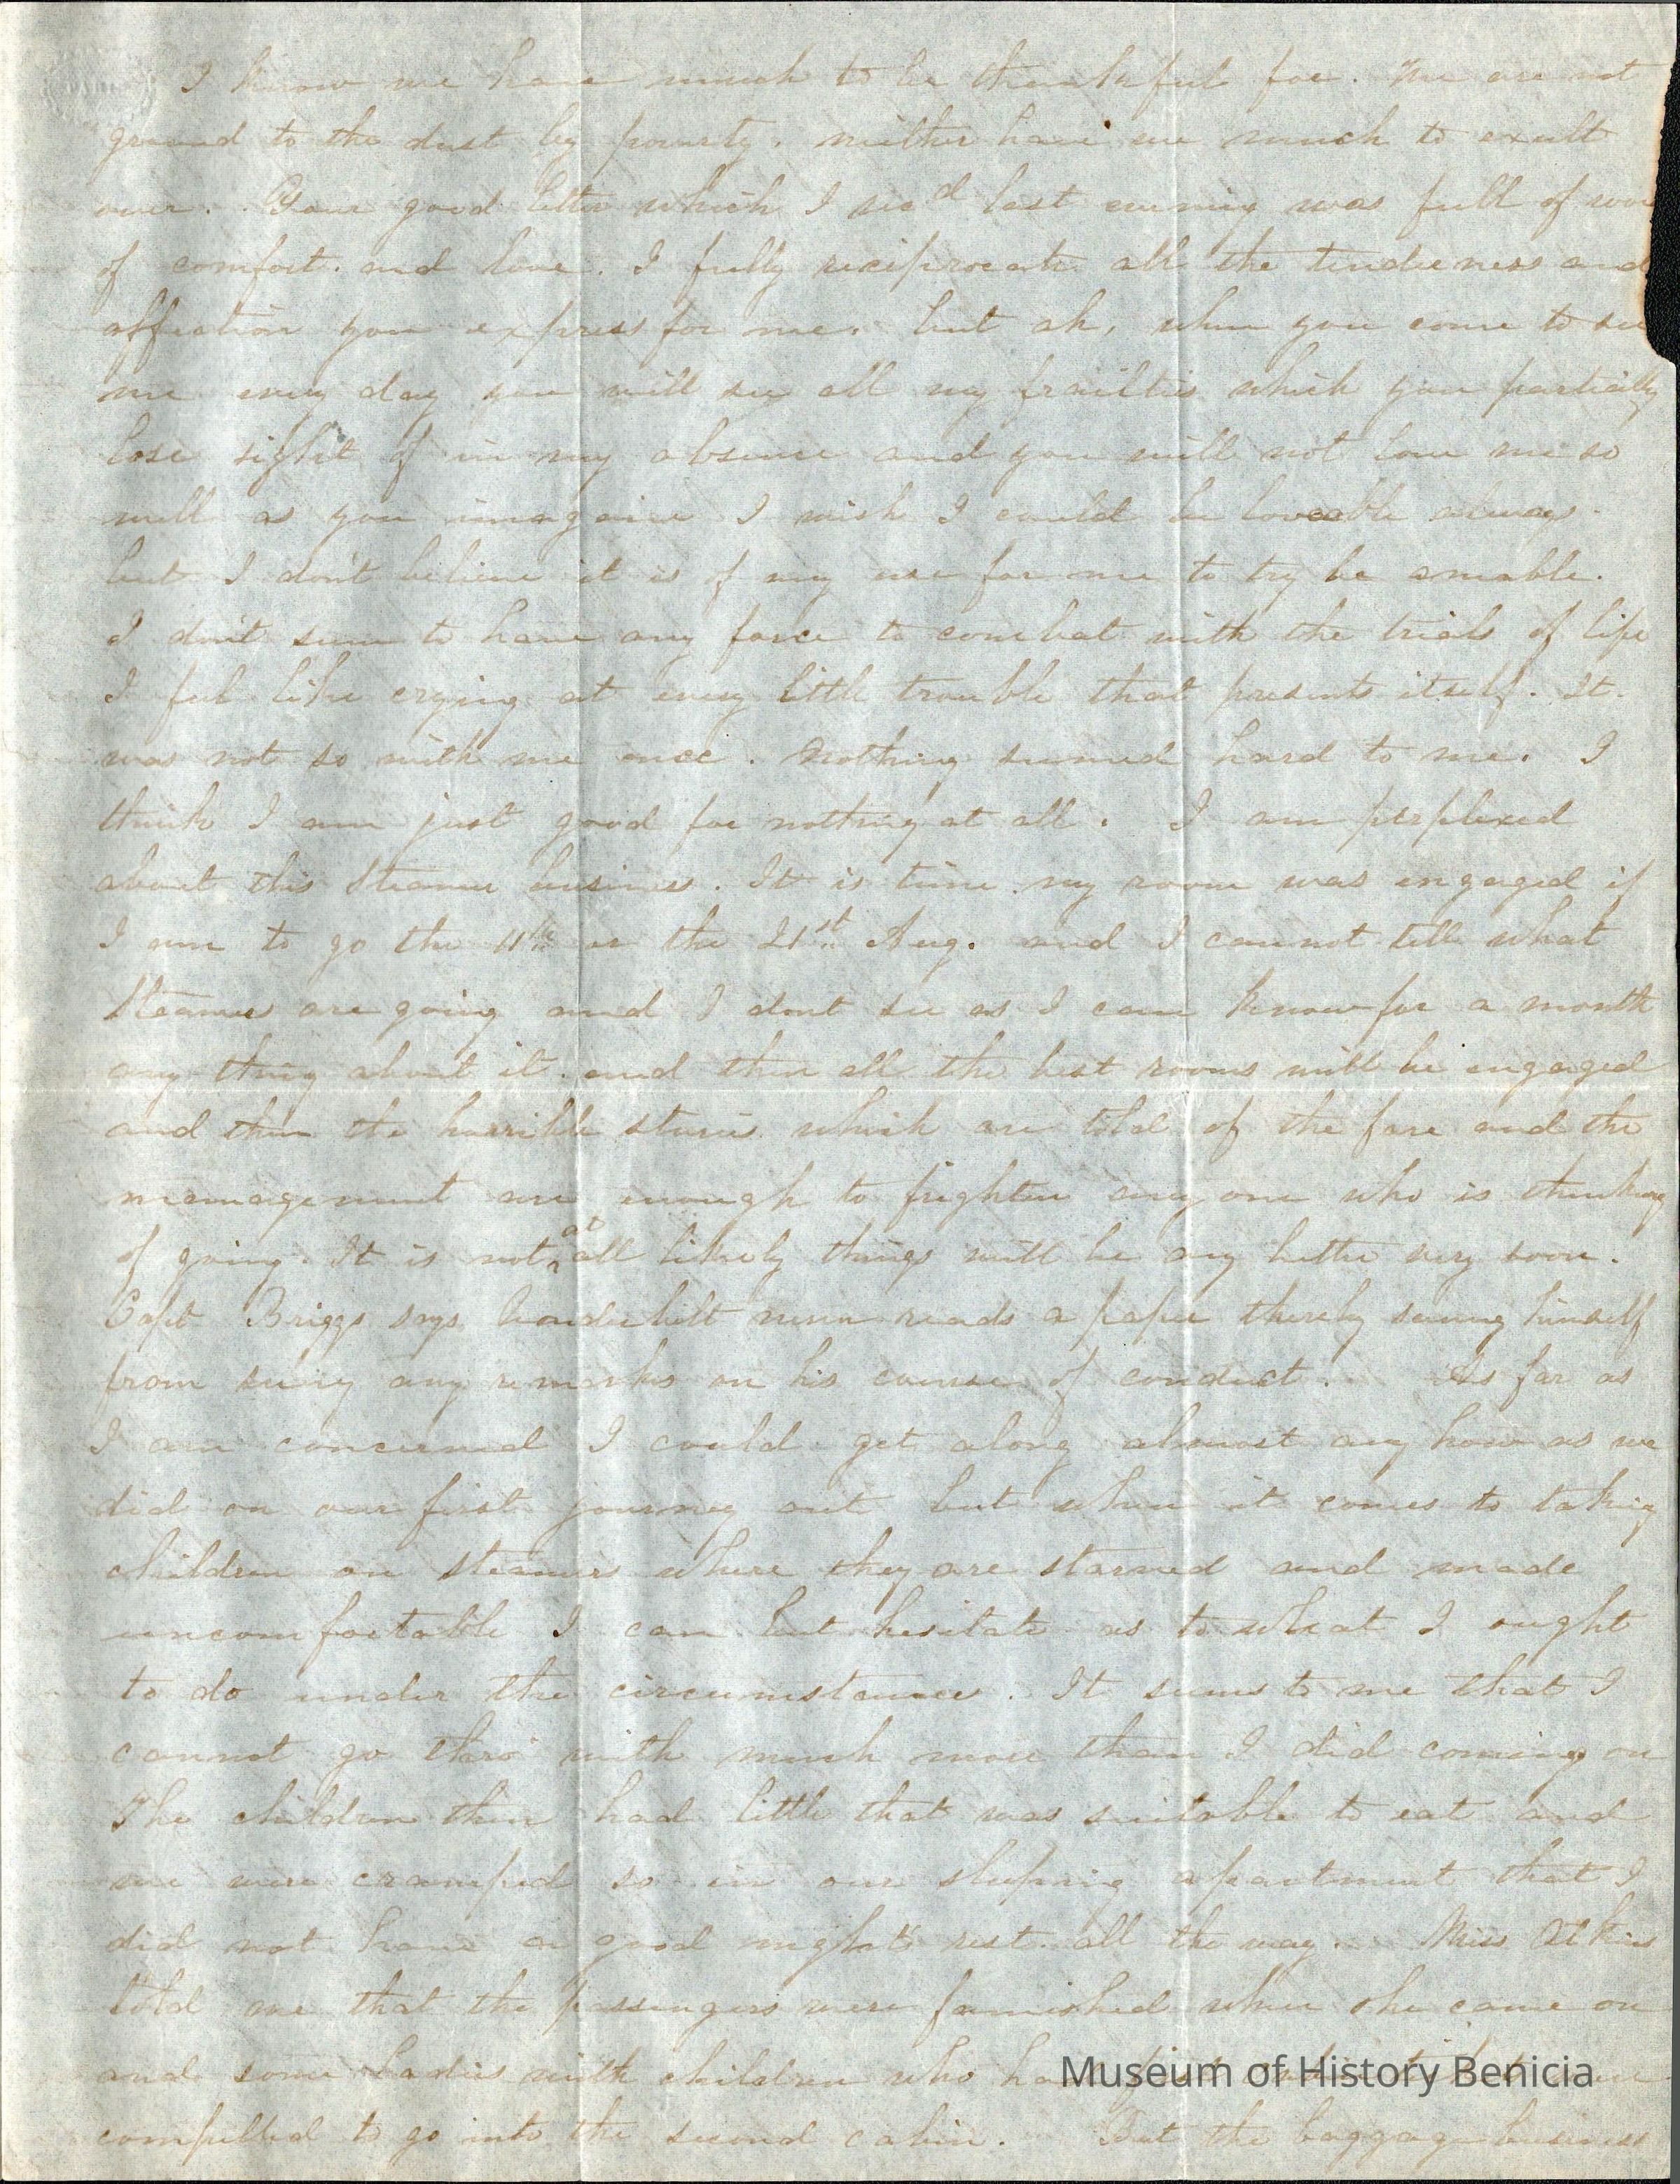 I know we have much to be thankful for. We are not
ground to the dust by poverty. neither have we much to exult
over. Your good letter which I recd last evening was full of
of comfort. and love. I fully reciprocate all the tenderness and
affection you express for me. but ah, when you come to see
me every day you will see all my frailties which you partially
lose sight of in my absence and you will not love me so
well as you imagine I wish I could be loveable always.
but I don't believe it is of any use for me to try be amiable.
I don't seem to have any force to combat with the trials of life
I feel like crying at every little trouble that presents itself. It
was not so with me once. Nothing seemed hard to me. I
think I am just good for nothing at all. I am perplexed
about this Steamer business. It is time my room was engaged if
I am to go the 11th or the 21st Aug. and I cannot tell what
Steamers are going and I dont see as I can know for a month
any thing about it and then all the best rooms will be engaged
and then the horrible stories which are told of the fare and the
management are enough to frighten any one who is thinking
of going. It is not at all likely things will be any better very soon.
Capt Briggs says Vanderbilt never reads a paper thereby saving himself
from seeing any remarks on his course of conduct. As far as
I am concerned I could get along almost any how as we
did on our first journey out but when it comes to taking
children on steamers where they are starved and made
uncomfortable I can but hesitate as to what I ought
to do under the circumstances. It seems to me that I
cannot go thro' with much more than I did coming on
The children then had little that was suitable to eat and
we were cramped so in our sleeping apartment that I
did not have a good night's rest all the way. Miss Atkins
told me that the passengers were famished when she came on
and some Ladies with children who
compelled to go into the second cabin. But the baggage business
Museum of History Benicia